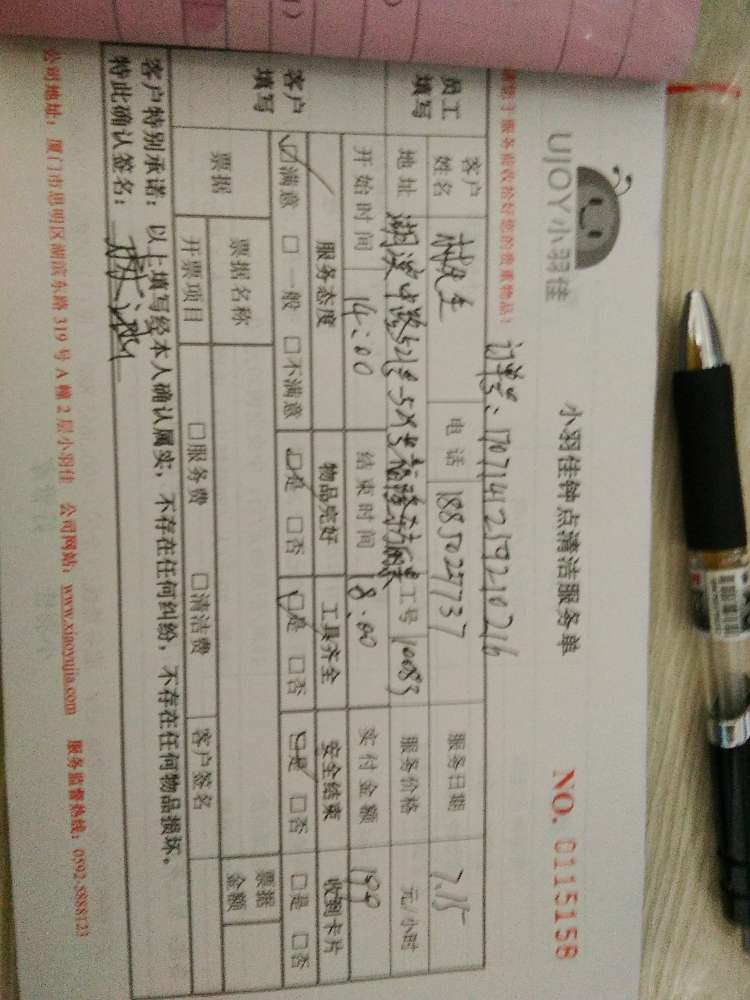 UJOY小羽佳
小羽佳钟点清洁服务单
NO. 0115158
订单号：
员工填写
客户姓名
电话
服务日期 7.15
地址
工号 10083 服务价格 元/小时
开始时间 14:00 结束时间 8:00 实付金额 199
客户填写
服务态度 物品完好 工具齐全 安全结束 收到卡片
☑满意 □一般 □不满意 ☑是 □否 ☑是 □否 ☑是 □否 □是 □否
票据 票据名称 票据金额
开票项目 □服务费 □清洁费 客户签名
客户特别承诺：以上填写经本人确认属实，不存在任何纠纷，不存在任何物品损坏。
特此确认签名：
公司地址：厦门市思明区湖滨东路319号A幢2层小羽佳 公司网站：www.xiaoyujia.com 服务监督热线：0592-5888123